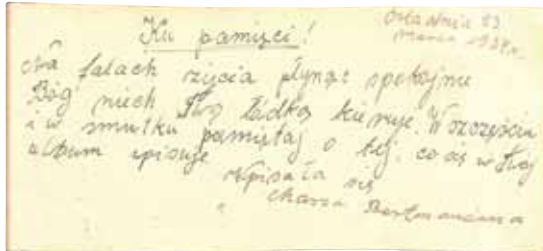 Ku pamięci!
dnia 23
marca
Na falach życia płynąc spokojnie
Bóg niech Twą łódką kieruje. W szczęściu
i w smutku pamiętaj o tej. co się w Twój
album wpisuje
Wpisała się